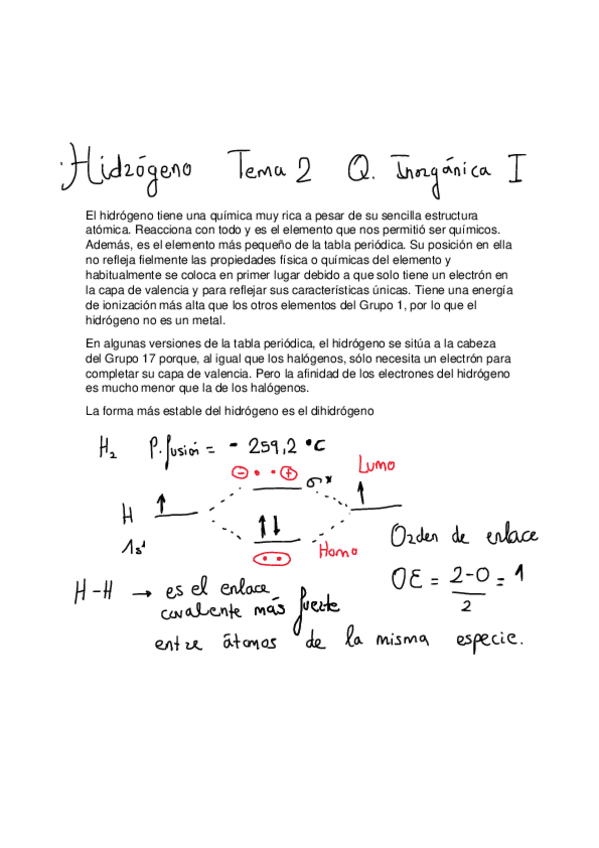 Hidrógeno Tema 2 Q. Inorgánica I
El hidrógeno tiene una química muy rica a pesar de su sencilla estructura
atómica. Reacciona con todo y es el elemento que nos permitió ser químicos.
Además, es el elemento más pequeño de la tabla periódica. Su posición en ella
no refleja fielmente las propiedades física o químicas del elemento y
habitualmente se coloca en primer lugar debido a que solo tiene un electrón en
la capa de valencia y para reflejar sus características únicas. Tiene una energía
de ionización más alta que los otros elementos del Grupo 1, por lo que el
hidrógeno no es un metal.
En algunas versiones de la tabla periódica, el hidrógeno se sitúa a la cabeza
del Grupo 17 porque, al igual que los halógenos, sólo necesita un electrón para
completar su capa de valencia. Pero la afinidad de los electrones del hidrógeno
es mucho menor que la de los halógenos.
La forma más estable del hidrógeno es el dihidrógeno
H₂ P. fusión = - 259,2 °C
Lumo
σ*
H
1s¹
Homo
Orden de enlace
OE = 2-0/2 = 1
H-H → es el enlace
covalente más fuerte
entre átomos de la misma especie.